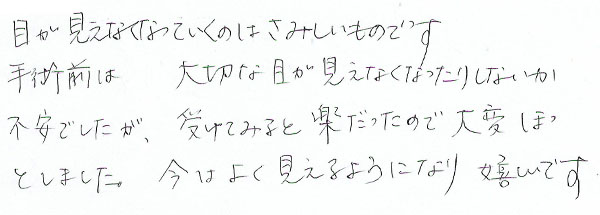 目が見えなくなっていくのはさみしいものです
手術前は 大切な目が見えなくなったりしないか
不安でしたが、受けてみると楽だったので大変ほっ
としました。今はよく見えるようになり嬉しいです